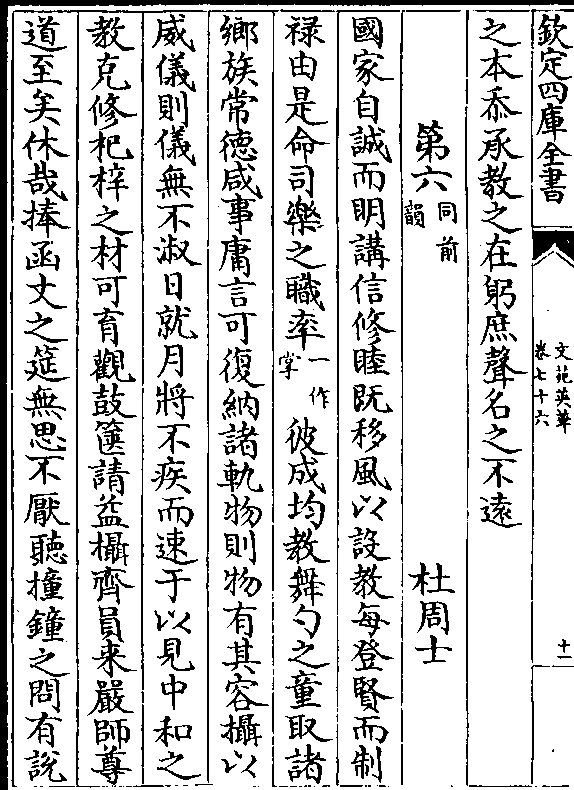 欽定四庫全書
文苑英華
卷七十六
十一
之本忝承教之在躬庶聲名之不遠
第六同前韻
杜周士
國家自誠而明講信修睦既移風以設教每登賢而制
禄由是命司樂之職率一作掌彼成均教舞勺之童取諸
鄉族常德咸事庸言可復納諸軌物則物有其容攝以
威儀則儀無不淑日就月將不疾而速于以見中和之
教克修杞梓之材可育觀鼓篋請益攝齊員来嚴師尊
道至矣休哉捧函丈之筵無思不厭聽撞鐘之問有說